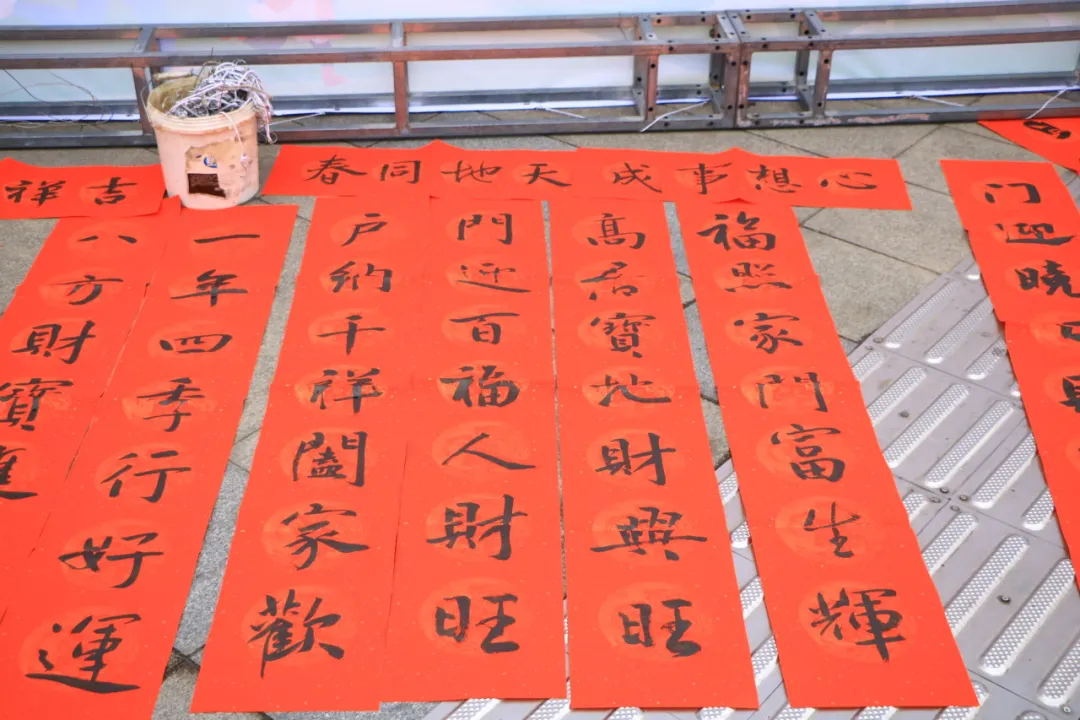 门迎晓
心想事成
福照家門富生輝
高居寶地財興旺
天地同春
門迎百福人財旺
户納千祥闔家歡
吉祥
一年四季行好運
八方財寶